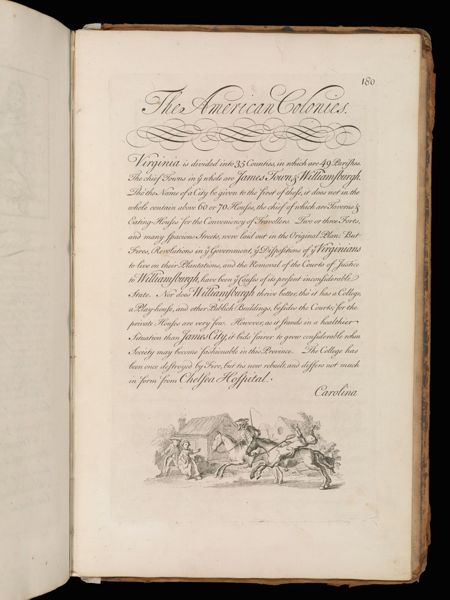 180
The American Colonies.
Virginia is divided into 35 Counties, in which are 49 Parishes.
The chief Towns in ye whole are James Town, & Williamsburgh.
Tho' the Name of a City be given to the first of these, it does not in the
whole contain above 60 or 70 Houses, the chief of which are Taverns &
Eating-Houses for the Conveniency of Travellers. Two or three Forts,
and many spacious Streets, were laid out in the Original Plan: But
Fires, Revolutions in ye Government, ye Dispositions of ye Virginians
to live on their Plantations, and the Removal of the Courts of Justice
to Williamsburgh, have been ye Causes of its present inconsiderable
State. Nor does Williamsburgh thrive better, tho' it has a College,
a Play-house, and other Publick Buildings, besides the Courts; for the
private Houses are very few. However, as it stands in a healthier
Situation than James City, it bids fairer to grow considerable when
Society may become fashionable in this Province. The College has
been once destroyed by Fire, but 'tis now rebuilt, and differs not much
in form from Chelsea Hospital.
Carolina